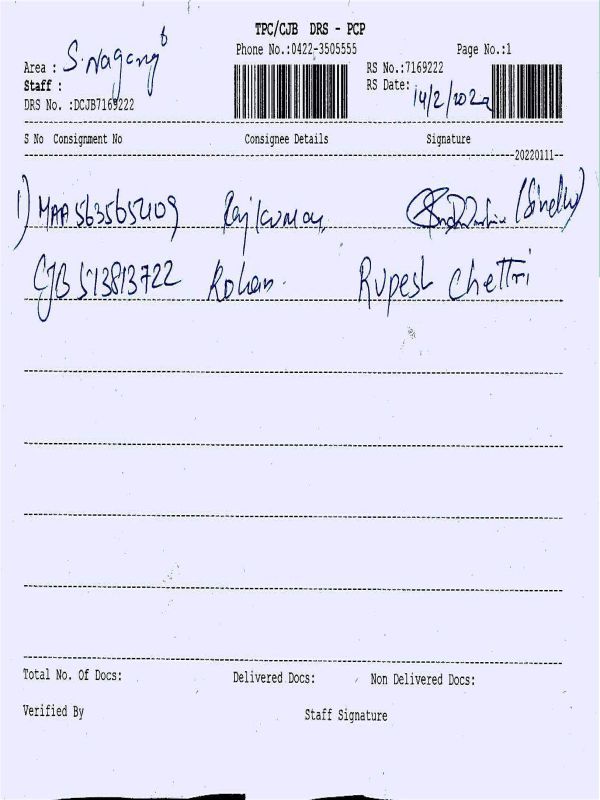 TPC/CJB DRS - PCP
Phone No.:0422-3505555 Page No.:1
Area : S.Nagar
RS No.:7169222
Staff :
RS Date: 14/2/2022
DRS No. :DCJB7169222
S No Consignment No Consignee Details Signature
20220111
1) MAA 563565409 Rajkumar
CJB 513813722 Rohan. Rupesh Chettri
Total No. Of Docs: Delivered Docs: Non Delivered Docs:
Verified By Staff Signature